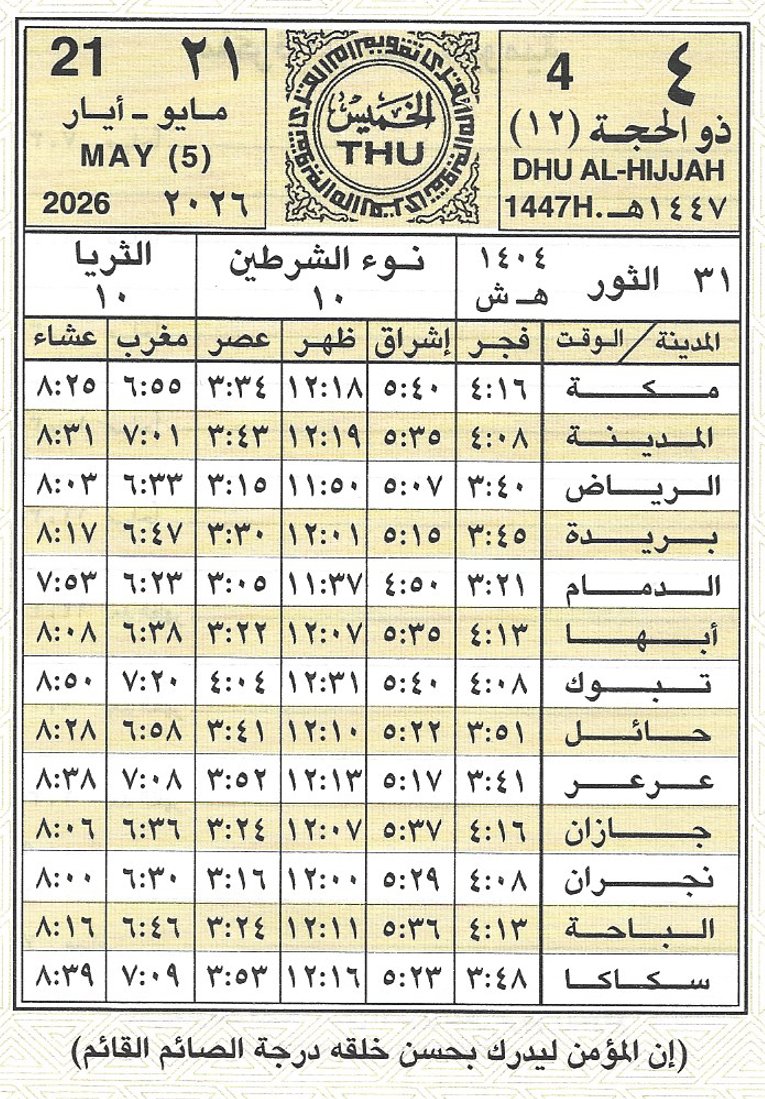 ٤ 4
ذو الحجة (١٢)
DHU AL-HIJJAH
1447H. ١٤٤٧هـ
الخميس
THU
21 ٢١
مايو - أيار
MAY (5)
2026 ٢٠٢٦
٣١ الثور ١٤٠٤ هـ ش
نوء الشرطين ١٠
الثريا ١٠
المدينة / الوقت فجر إشراق ظهر عصر مغرب عشاء
مكة ٤:١٦ ٥:٤٠ ١٢:١٨ ٣:٣٤ ٦:٥٥ ٨:٢٥
المدينة ٤:٠٨ ٥:٣٥ ١٢:١٩ ٣:٤٣ ٧:٠١ ٨:٣١
الرياض ٣:٤٠ ٥:٠٧ ١١:٥٠ ٣:١٥ ٦:٣٣ ٨:٠٣
بريدة ٣:٤٥ ٥:١٥ ١٢:٠١ ٣:٣٠ ٦:٤٧ ٨:١٧
الدمام ٣:٢١ ٤:٥٠ ١١:٣٧ ٣:٠٥ ٦:٢٣ ٧:٥٣
أبها ٤:١٣ ٥:٣٥ ١٢:٠٧ ٣:٢٢ ٦:٣٨ ٨:٠٨
تبوك ٤:٠٨ ٥:٤٠ ١٢:٣١ ٤:٠٤ ٧:٢٠ ٨:٥٠
حائل ٣:٥١ ٥:٢٢ ١٢:١٠ ٣:٤١ ٦:٥٨ ٨:٢٨
عرعر ٣:٤١ ٥:١٧ ١٢:١٣ ٣:٥٢ ٧:٠٨ ٨:٣٨
جازان ٤:١٦ ٥:٣٧ ١٢:٠٧ ٣:٢٤ ٦:٣٦ ٨:٠٦
نجران ٤:٠٨ ٥:٢٩ ١٢:٠٠ ٣:١٦ ٦:٣٠ ٨:٠٠
الباحة ٤:١٣ ٥:٣٦ ١٢:١١ ٣:٢٤ ٦:٤٦ ٨:١٦
سكاكا ٣:٤٨ ٥:٢٣ ١٢:١٦ ٣:٥٣ ٧:٠٩ ٨:٣٩
(إن المؤمن ليدرك بحسن خلقه درجة الصائم القائم)